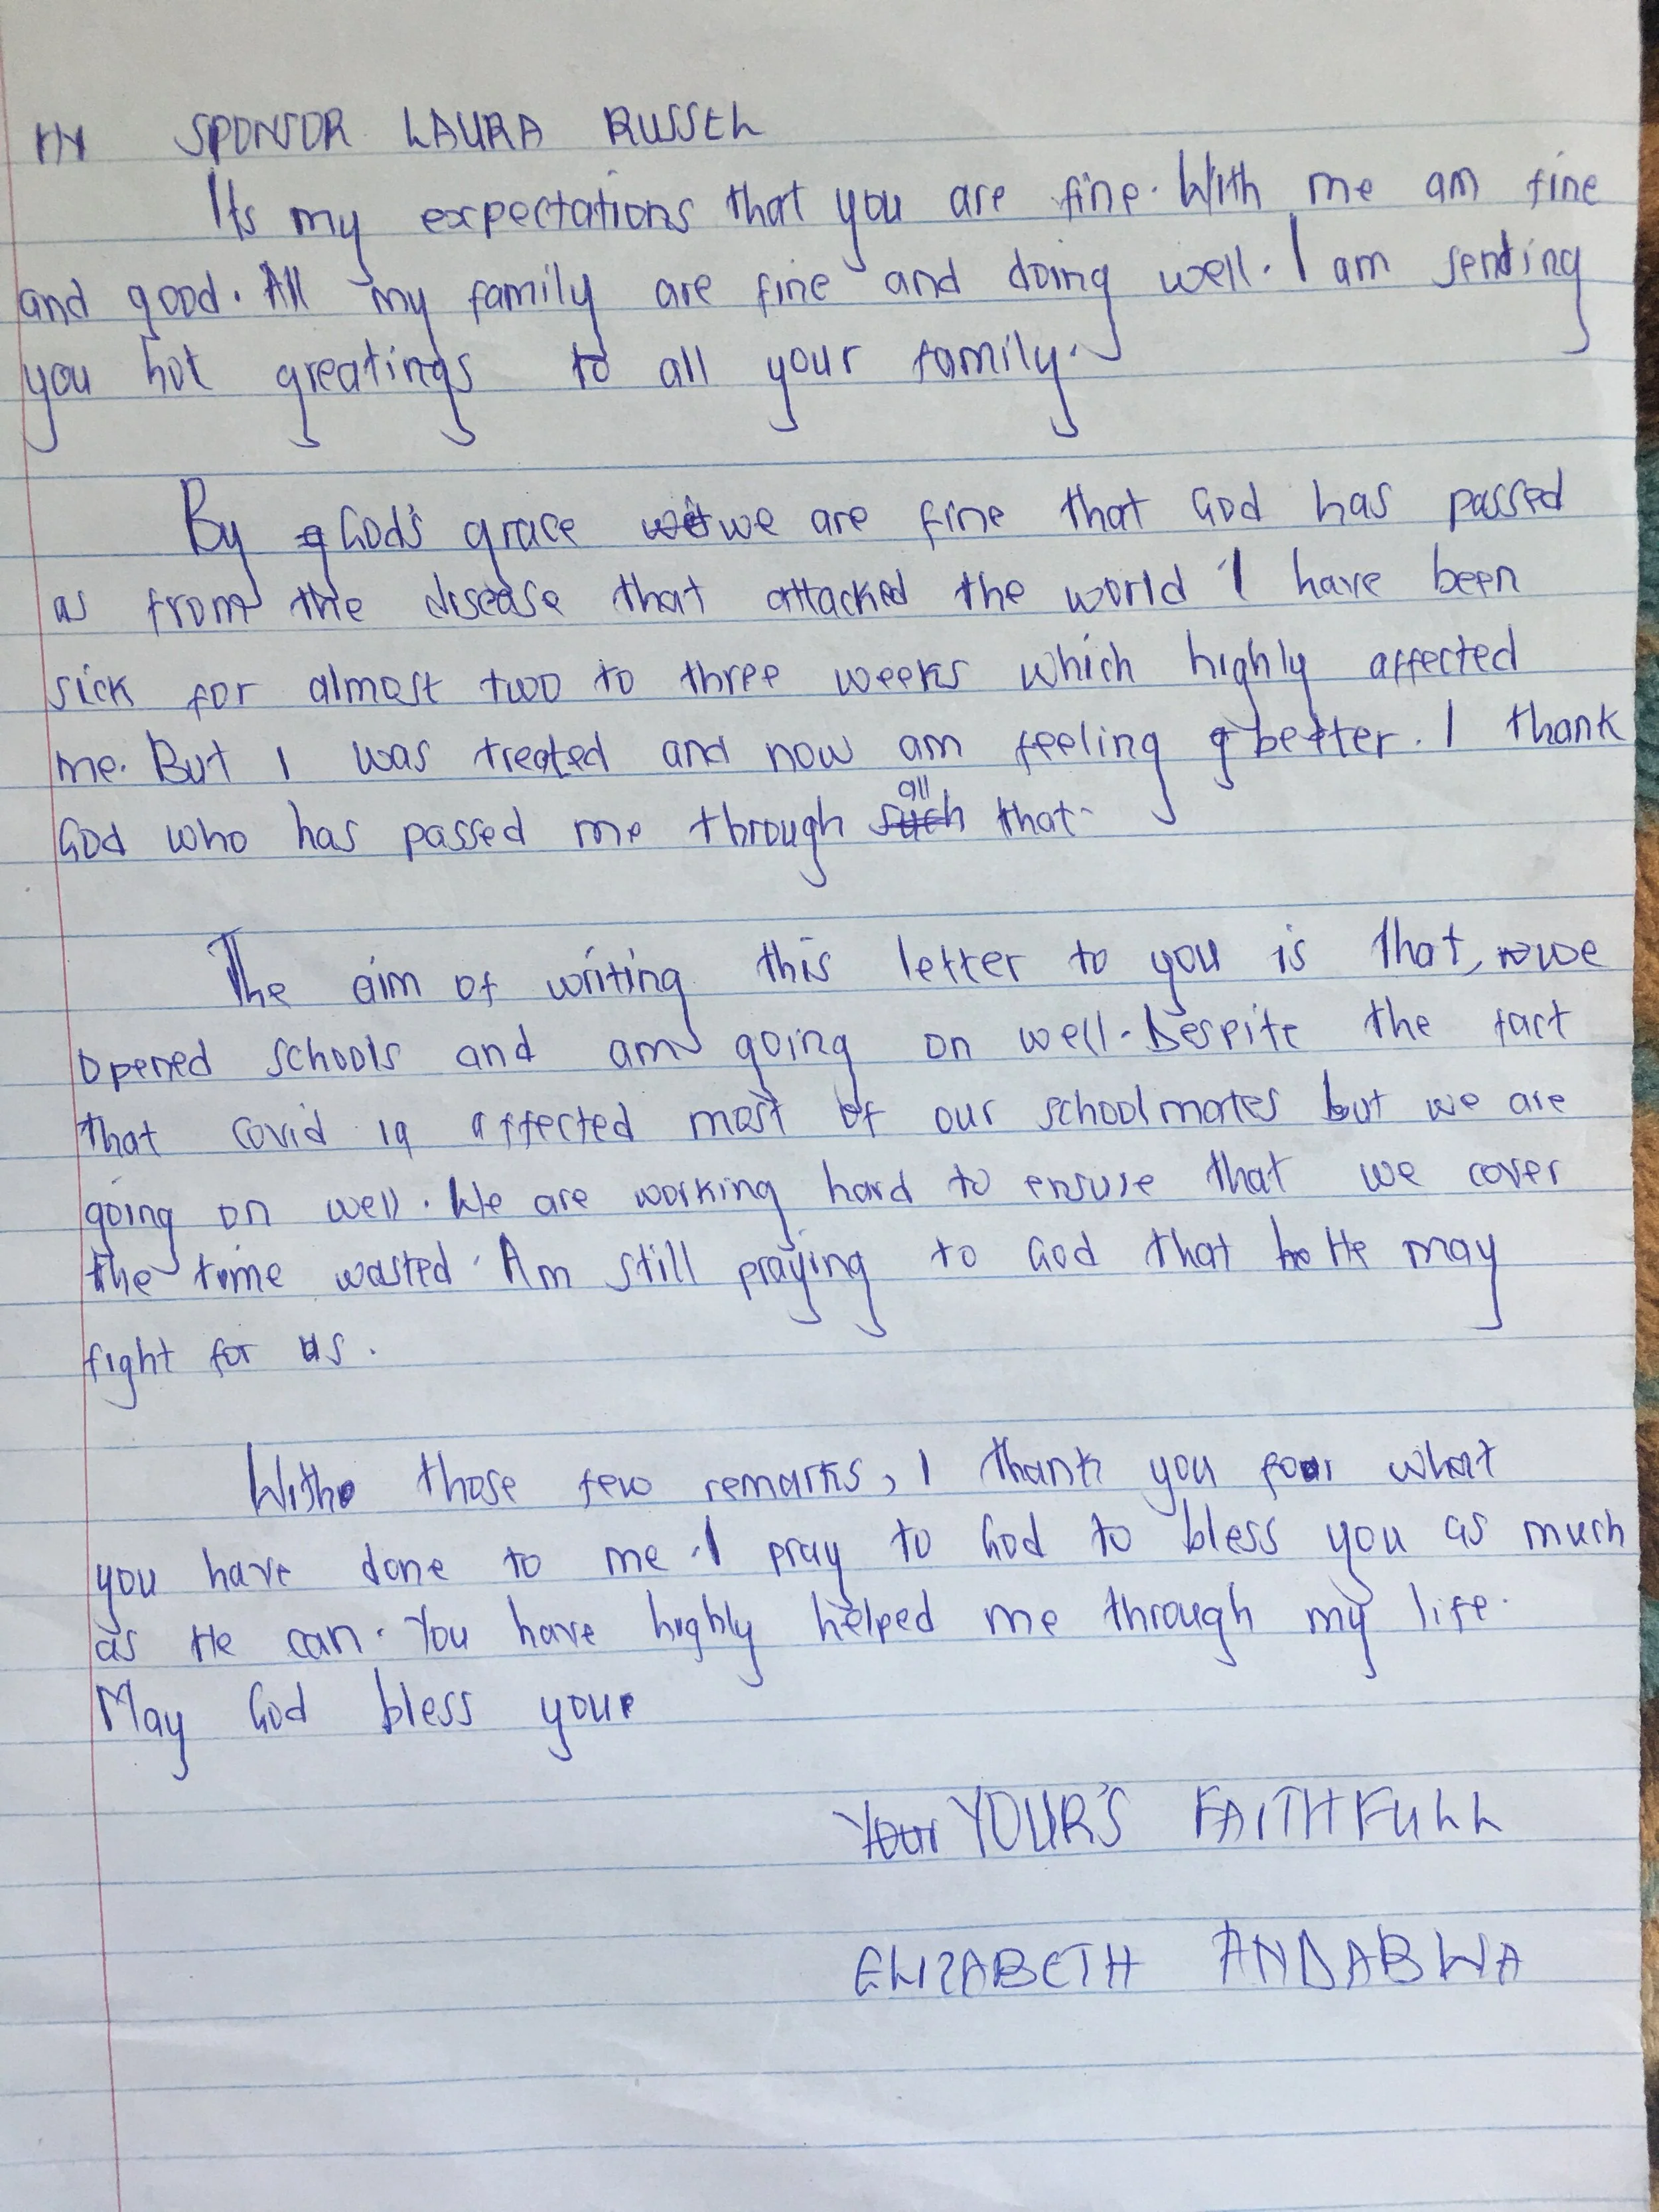 HY SPONSOR LAURA RUSSEL
Its my expectations that you are fine. With me am fine
and good. All my family are fine and doing well. I am sending
you hot greatings to all your family.
By God's grace we are fine that God has passed
as from the disease that attacked the world I have been
sick for almost two to three weeks which highly affected
me. But I was treated and now am feeling better. I thank
God who has passed me through all that.
The aim of writing this letter to you is that, we
opened schools and am going on well. Despite the fact
that covid 19 affected most of our schoolmates but we are
going on well. We are working hard to ensure that we cover
the time wasted. Am still praying to God that He may
fight for us.
With those few remarks, I thank you for what
you have done to me. I pray to God to bless you as much
as He can. You have highly helped me through my life.
May God bless you
YOUR'S FAITHFULL
ELIZABETH ANDABWA